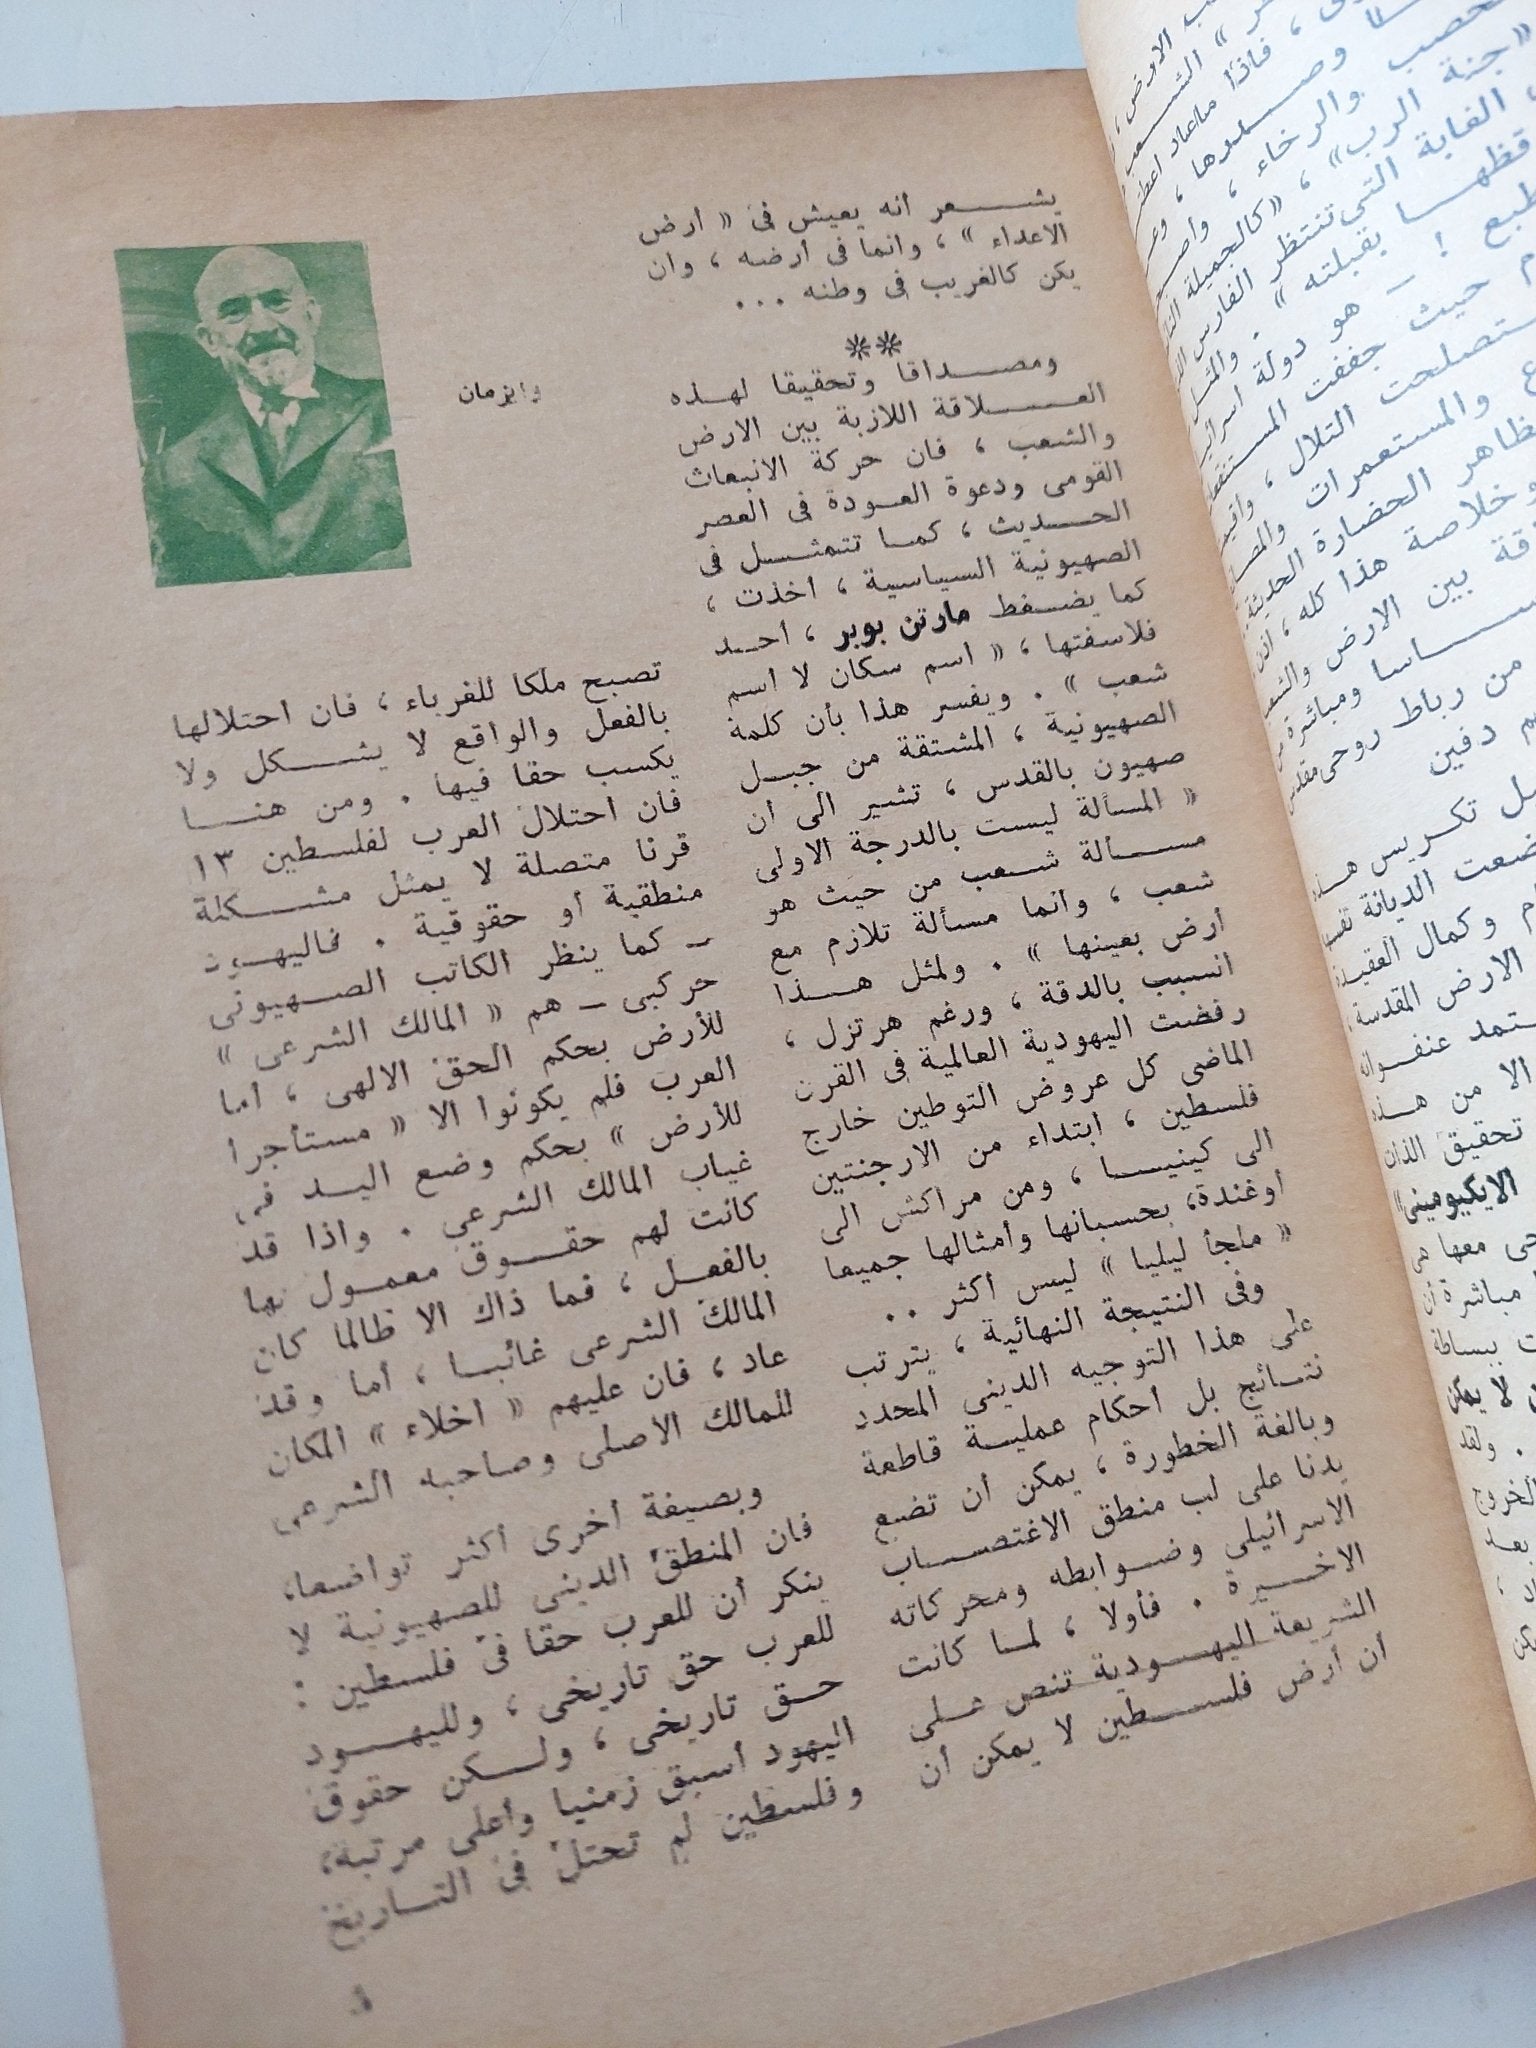 يشعر أنه يعيش في « أرض
الاعداء » ، وانما في أرضه ، وان
يكن كالغريب في وطنه . . .
**
ومصداقا وتحقيقا لهذه
العلاقة اللازبة بين الارض
والشعب ، فان حركة الانبعاث
القومى ودعوة العودة في العصر
الحديث ، كما تتمثل في
الصهيونية السياسية ، أخذت ،
كما يضغط مارتن بوبر ، أحد
فلاسفتها ، « اسم سكان لا اسم
شعب » . ويفسر هذا بأن كلمة
الصهيونية ، المشتقة من جبل
صهيون بالقدس ، تشير الى أن
« المسألة ليست بالدرجة الاولى
مسألة شعب من حيث هو
شعب ، وانما مسألة تلازم مع
أرض بعينها » . ولمثل هذا
السبب بالدقة ، ورغم هرتزل ،
رفضت اليهودية العالمية في القرن
الماضى كل عروض التوطين خارج
فلسطين ، ابتداء من الارجنتين
الى كينيا ، ومن مراكش الى
أوغندة، بحسبانها وأمثالها جميعا
« ملجأ ليليا » ليس أكثر . .
وفى النتيجة النهائية ، يترتب
على هذا التوجيه الدينى المحدد
نتائج بل أحكام عملية قاطعة
وبالغة الخطورة ، يمكن أن تضع
يدنا على لب منطق الاغتصاب
الاسرائيلى وضوابطه ومحركاته
الاخيرة . فأولا ، لما كانت
الشريعة اليهودية تنص على
أن أرض فلسطين لا يمكن أن
وايزمان
تصبح ملكا للغرباء ، فان احتلالها
بالفعل والواقع لا يشكل ولا
يكسب حقا فيها . ومن هنا
فان احتلال العرب لفلسطين ١٣
قرنا متصلة لا يمثل مشكلة
منطقية أو حقوقية . فاليهود
– كما ينظر الكاتب الصهيونى
حركبى – هم « المالك الشرعى »
للأرض بحكم الحق الالهى ، أما
العرب فلم يكونوا الا « مستأجرا
للأرض » بحكم وضع اليد فى
غياب المالك الشرعى . واذا قد
كانت لهم حقوق معمول بها
بالفعل ، فما ذاك الا طالما كان
المالك الشرعى غائبا ، أما وقد
عاد ، فان عليهم « اخلاء » المكان
للمالك الاصلى وصاحبه الشرعى
وبصيغة أخرى أكثر تواضعا،
فان المنطق الدينى للصهيونية لا
ينكر أن للعرب حقا فى فلسطين :
للعرب حق تاريخى ، ولليهود
حق تاريخى ، ولكن حقوق
اليهود أسبق زمنيا وأعلى مرتبة،
وفلسطين لم تحتل فى التاريخ
« جنة الرب» ، «كالجميلة
الغابة التى تنتظر الفارس
بقبلته » .
! – هو دولة
حيث جففت
استصلحت التلال ،
والمستعمرات
الحضارة الحديثة
وخلاصة هذا كله ،
بين الارض
ومباشرة
من رباط روحى مقدس
دفين
تكريس
الديانة
وكمال العقيدة
الارض المقدسة،
الا من هذه
تحقيق الذات
معها هى
مباشرة أن
ببساطة
لا يمكن
. ولقد
الخروج
بعد